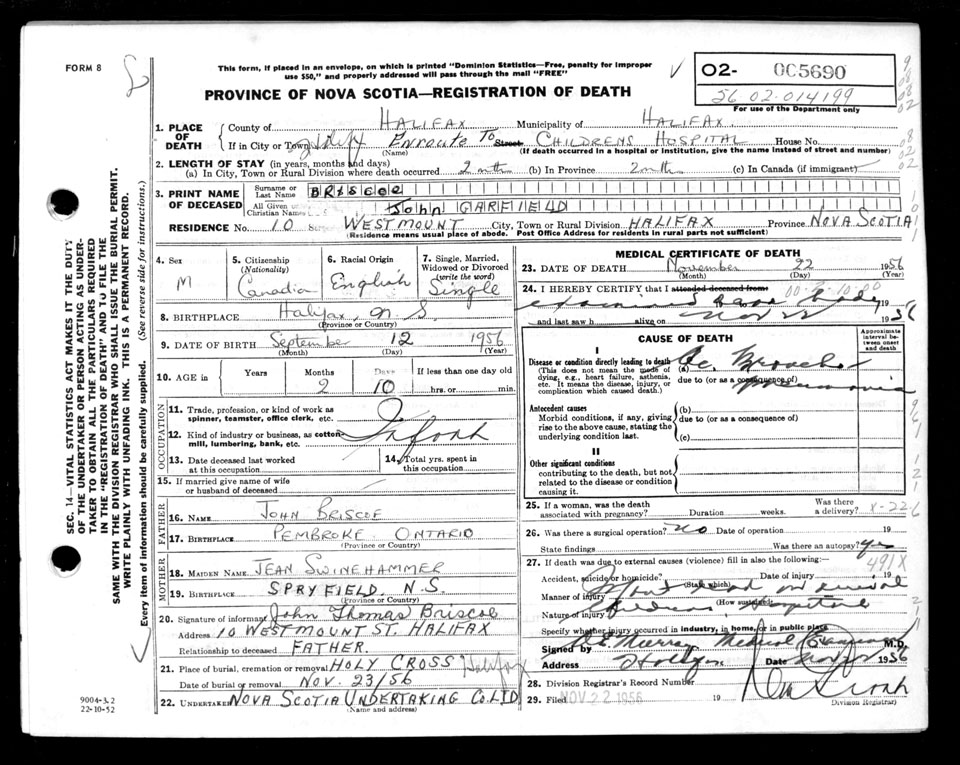 FORM 8
This form, if placed in an envelope, on which is printed "Dominion Statistics—Free, penalty for improper
use $50," and properly addressed will pass through the mail "FREE"
PROVINCE OF NOVA SCOTIA—REGISTRATION OF DEATH
02- 005690
56 02-014199
For use of the Department only
1. PLACE OF DEATH
County of HALIFAX Municipality of HALIFAX
If in City or Town Halifax Enroute To Street CHILDRENS HOSPITAL House No.
(Name) (If death occurred in a hospital or institution, give the name instead of street and number)
2. LENGTH OF STAY (in years, months and days)
(a) In City, Town or Rural Division where death occurred 2 mth (b) In Province 2 mth (c) In Canada (if immigrant)
3. PRINT NAME OF DECEASED
Surname or Last Name BRISCOE
All Given or Christian Names John GARFIELD
RESIDENCE No. 10 Street WESTMOUNT City, Town or Rural Division HALIFAX Province NOVA SCOTIA
(Residence means usual place of abode. Post Office Address for residents in rural parts not sufficient)
4. Sex
M
5. Citizenship (Nationality)
Canadian
6. Racial Origin
English
7. Single, Married, Widowed or Divorced (write the word)
Single
8. BIRTHPLACE Halifax, N.S.
(Province or Country)
9. DATE OF BIRTH September 12 1956
(Month) (Day) (Year)
10. AGE in Years Months Days If less than one day old
2 10 hrs. or min.
OCCUPATION
11. Trade, profession, or kind of work as spinner, teamster, office clerk, etc.
12. Kind of industry or business, as cotton-mill, lumbering, bank, etc.
Infant
13. Date deceased last worked at this occupation
14. Total yrs. spent in this occupation
15. If married give name of wife or husband of deceased
FATHER
16. NAME JOHN BRISCOE
17. BIRTHPLACE PEMBROKE ONTARIO
(Province or Country)
MOTHER
18. MAIDEN NAME JEAN SWINEHAMMER
19. BIRTHPLACE SPRYFIELD, N.S.
(Province or Country)
20. Signature of informant John Thomas Briscoe
Address 10 WESTMOUNT ST. HALIFAX
Relationship to deceased FATHER.
21. Place of burial, cremation or removal HOLY CROSS Halifax
Date of burial or removal NOV. 23/56
22. UNDERTAKER NOVA SCOTIA UNDERTAKING CO. LTD
(Name and address)
MEDICAL CERTIFICATE OF DEATH
23. DATE OF DEATH November 22 1956
(Month) (Day) (Year)
24. I HEREBY CERTIFY that I attended deceased from
examined body 19
and last saw h alive on Nov 22 1956
CAUSE OF DEATH
Approximate interval between onset and death
I
Disease or condition directly leading to death
(This does not mean the mode of dying, e.g., heart failure, asthenia, etc. It means the disease, injury, or complication which caused death.)
(a) Ac. Broncho
due to (or as a consequence of) pneumonia
Antecedent causes
Morbid conditions, if any, giving rise to the above cause, stating the underlying condition last.
(b)
due to (or as a consequence of)
(c)
II
Other significant conditions
contributing to the death, but not related to the disease or condition causing it.
25. If a woman, was the death associated with pregnancy? Duration weeks. Was there a delivery?
X-226
26. Was there a surgical operation? no Date of operation 19
State findings Was there an autopsy? yes
27. If death was due to external causes (violence) fill in also the following:—
491X
Accident, suicide or homicide? Date of injury 19
(State which)
Manner of injury dead on arrival
(How sustained)
Nature of injury Childrens Hospital
Specify whether injury occurred in industry, in home, or in public place
Signed by Murray Medical Examiner M.D.
Address Halifax Date Nov 22 1956
28. Division Registrar's Record Number
29. Filed NOV 22 1956 19
Division Registrar
9004-3.2
22-10-52
SEC. 14—VITAL STATISTICS ACT MAKES IT THE DUTY
OF THE UNDERTAKER OR PERSON ACTING AS UNDER-
TAKER TO OBTAIN ALL THE PARTICULARS REQUIRED
IN THE "REGISTRATION OF DEATH" AND TO FILE THE
SAME WITH THE DIVISION REGISTRAR WHO SHALL ISSUE THE BURIAL PERMIT.
WRITE PLAINLY WITH UNFADING INK. THIS IS A PERMANENT RECORD.
Every item of information should be carefully supplied. (See reverse side for instructions.)